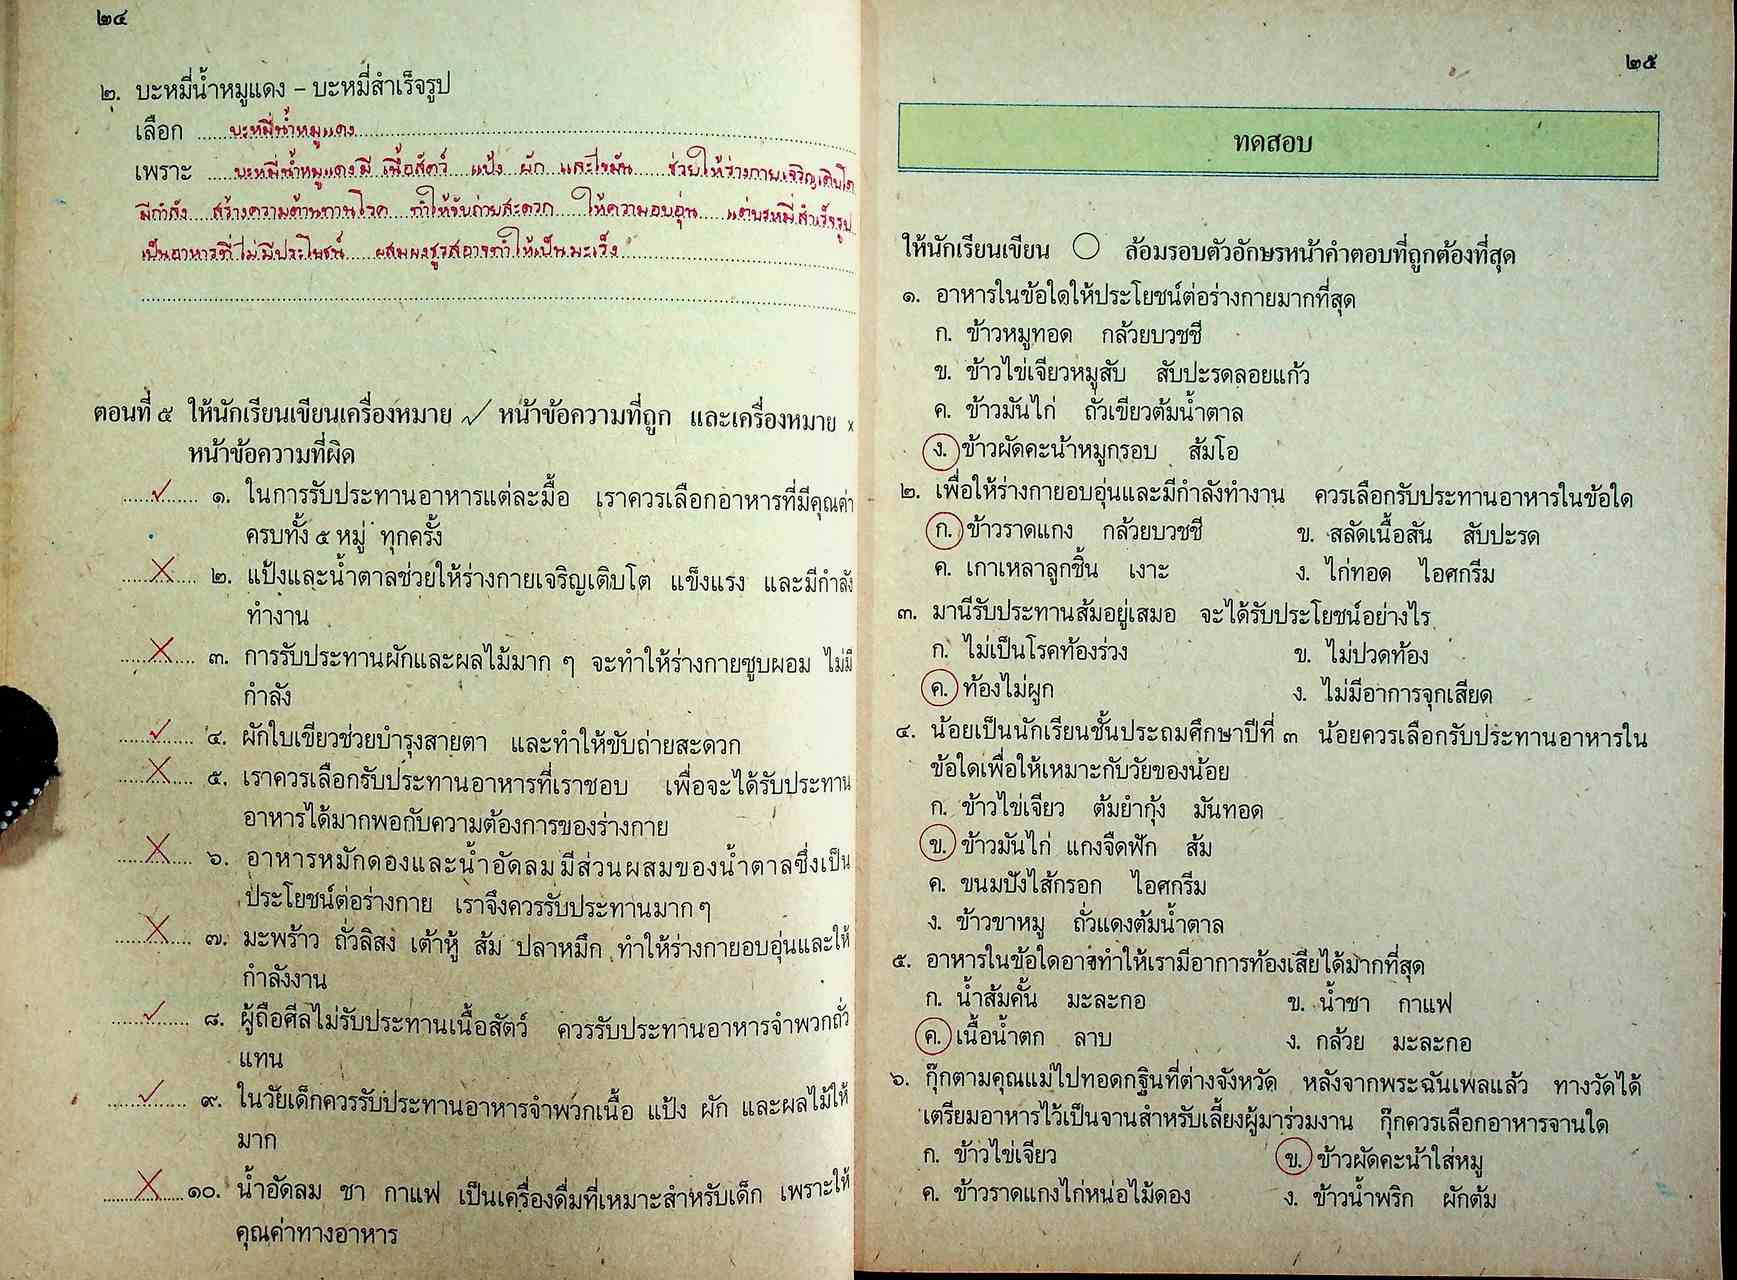 ๒๔
๒. บะหมี่น้ำหมูแดง – บะหมี่สำเร็จรูป
เลือก ......บะหมี่น้ำหมูแดง......
เพราะ ......บะหมี่น้ำหมูแดงมี เนื้อสัตว์ แป้ง ผัก และไขมัน ช่วยให้ร่างกายเจริญเติบโต
มีกำลัง สร้างความต้านทานโรค ทำให้ขับถ่ายสะดวก ให้ความอบอุ่น แต่บะหมี่สำเร็จรูป
เป็นอาหารที่ไม่มีประโยชน์ ผสมผงชูรสอาจทำให้เป็นมะเร็ง
ตอนที่ ๕ ให้นักเรียนเขียนเครื่องหมาย ✓ หน้าข้อความที่ถูก และเครื่องหมาย ×
หน้าข้อความที่ผิด
......✓...... ๑. ในการรับประทานอาหารแต่ละมื้อ เราควรเลือกอาหารที่มีคุณค่า
ครบทั้ง ๕ หมู่ ทุกครั้ง
......×...... ๒. แป้งและน้ำตาลช่วยให้ร่างกายเจริญเติบโต แข็งแรง และมีกำลัง
ทำงาน
......×...... ๓. การรับประทานผักและผลไม้มาก ๆ จะทำให้ร่างกายซูบผอม ไม่มี
กำลัง
......✓...... ๔. ผักใบเขียวช่วยบำรุงสายตา และทำให้ขับถ่ายสะดวก
......×...... ๕. เราควรเลือกรับประทานอาหารที่เราชอบ เพื่อจะได้รับประทาน
อาหารได้มากพอกับความต้องการของร่างกาย
......×...... ๖. อาหารหมักดองและน้ำอัดลมมีส่วนผสมของน้ำตาลซึ่งเป็น
ประโยชน์ต่อร่างกาย เราจึงควรรับประทานมาก ๆ
......×...... ๗. มะพร้าว ถั่วลิสง เต้าหู้ ส้ม ปลาหมึก ทำให้ร่างกายอบอุ่นและให้
กำลังงาน
......✓...... ๘. ผู้ถือศีลไม่รับประทานเนื้อสัตว์ ควรรับประทานอาหารจำพวกถั่ว
แทน
......✓...... ๙. ในวัยเด็กควรรับประทานอาหารจำพวกเนื้อ แป้ง ผัก และผลไม้ให้
มาก
......×...... ๑๐. น้ำอัดลม ชา กาแฟ เป็นเครื่องดื่มที่เหมาะสำหรับเด็ก เพราะให้
คุณค่าทางอาหาร
๒๕
ทดสอบ
ให้นักเรียนเขียน ○ ล้อมรอบตัวอักษรหน้าคำตอบที่ถูกต้องที่สุด
๑. อาหารในข้อใดให้ประโยชน์ต่อร่างกายมากที่สุด
ก. ข้าวหมูทอด กล้วยบวชชี
ข. ข้าวไข่เจียวหมูสับ สับปะรดลอยแก้ว
ค. ข้าวมันไก่ ถั่วเขียวต้มน้ำตาล
ง. ข้าวผัดคะน้าหมูกรอบ ส้มโอ
๒. เพื่อให้ร่างกายอบอุ่นและมีกำลังทำงาน ควรเลือกรับประทานอาหารในข้อใด
ก. ข้าวราดแกง กล้วยบวชชี ข. สลัดเนื้อสัน สับปะรด
ค. เกาเหลาลูกชิ้น เงาะ ง. ไก่ทอด ไอศกรีม
๓. มานีรับประทานส้มอยู่เสมอ จะได้รับประโยชน์อย่างไร
ก. ไม่เป็นโรคท้องร่วง ข. ไม่ปวดท้อง
ค. ท้องไม่ผูก ง. ไม่มีอาการจุกเสียด
๔. น้อยเป็นนักเรียนชั้นประถมศึกษาปีที่ ๓ น้อยควรเลือกรับประทานอาหารใน
ข้อใดเพื่อให้เหมาะกับวัยของน้อย
ก. ข้าวไข่เจียว ต้มยำกุ้ง มันทอด
ข. ข้าวมันไก่ แกงจืดฟัก ส้ม
ค. ขนมปังไส้กรอก ไอศกรีม
ง. ข้าวขาหมู ถั่วแดงต้มน้ำตาล
๕. อาหารในข้อใดอาจทำให้เรามีอาการท้องเสียได้มากที่สุด
ก. น้ำส้มคั้น มะละกอ ข. น้ำชา กาแฟ
ค. เนื้อน้ำตก ลาบ ง. กล้วย มะละกอ
๖. กุ๊กตามคุณแม่ไปทอดกฐินที่ต่างจังหวัด หลังจากพระฉันเพลแล้ว ทางวัดได้
เตรียมอาหารไว้เป็นจานสำหรับเลี้ยงผู้มาร่วมงาน กุ๊กควรเลือกอาหารจานใด
ก. ข้าวไข่เจียว ข. ข้าวผัดคะน้าใส่หมู
ค. ข้าวราดแกงไก่หน่อไม้ดอง ง. ข้าวน้ำพริก ผักต้ม